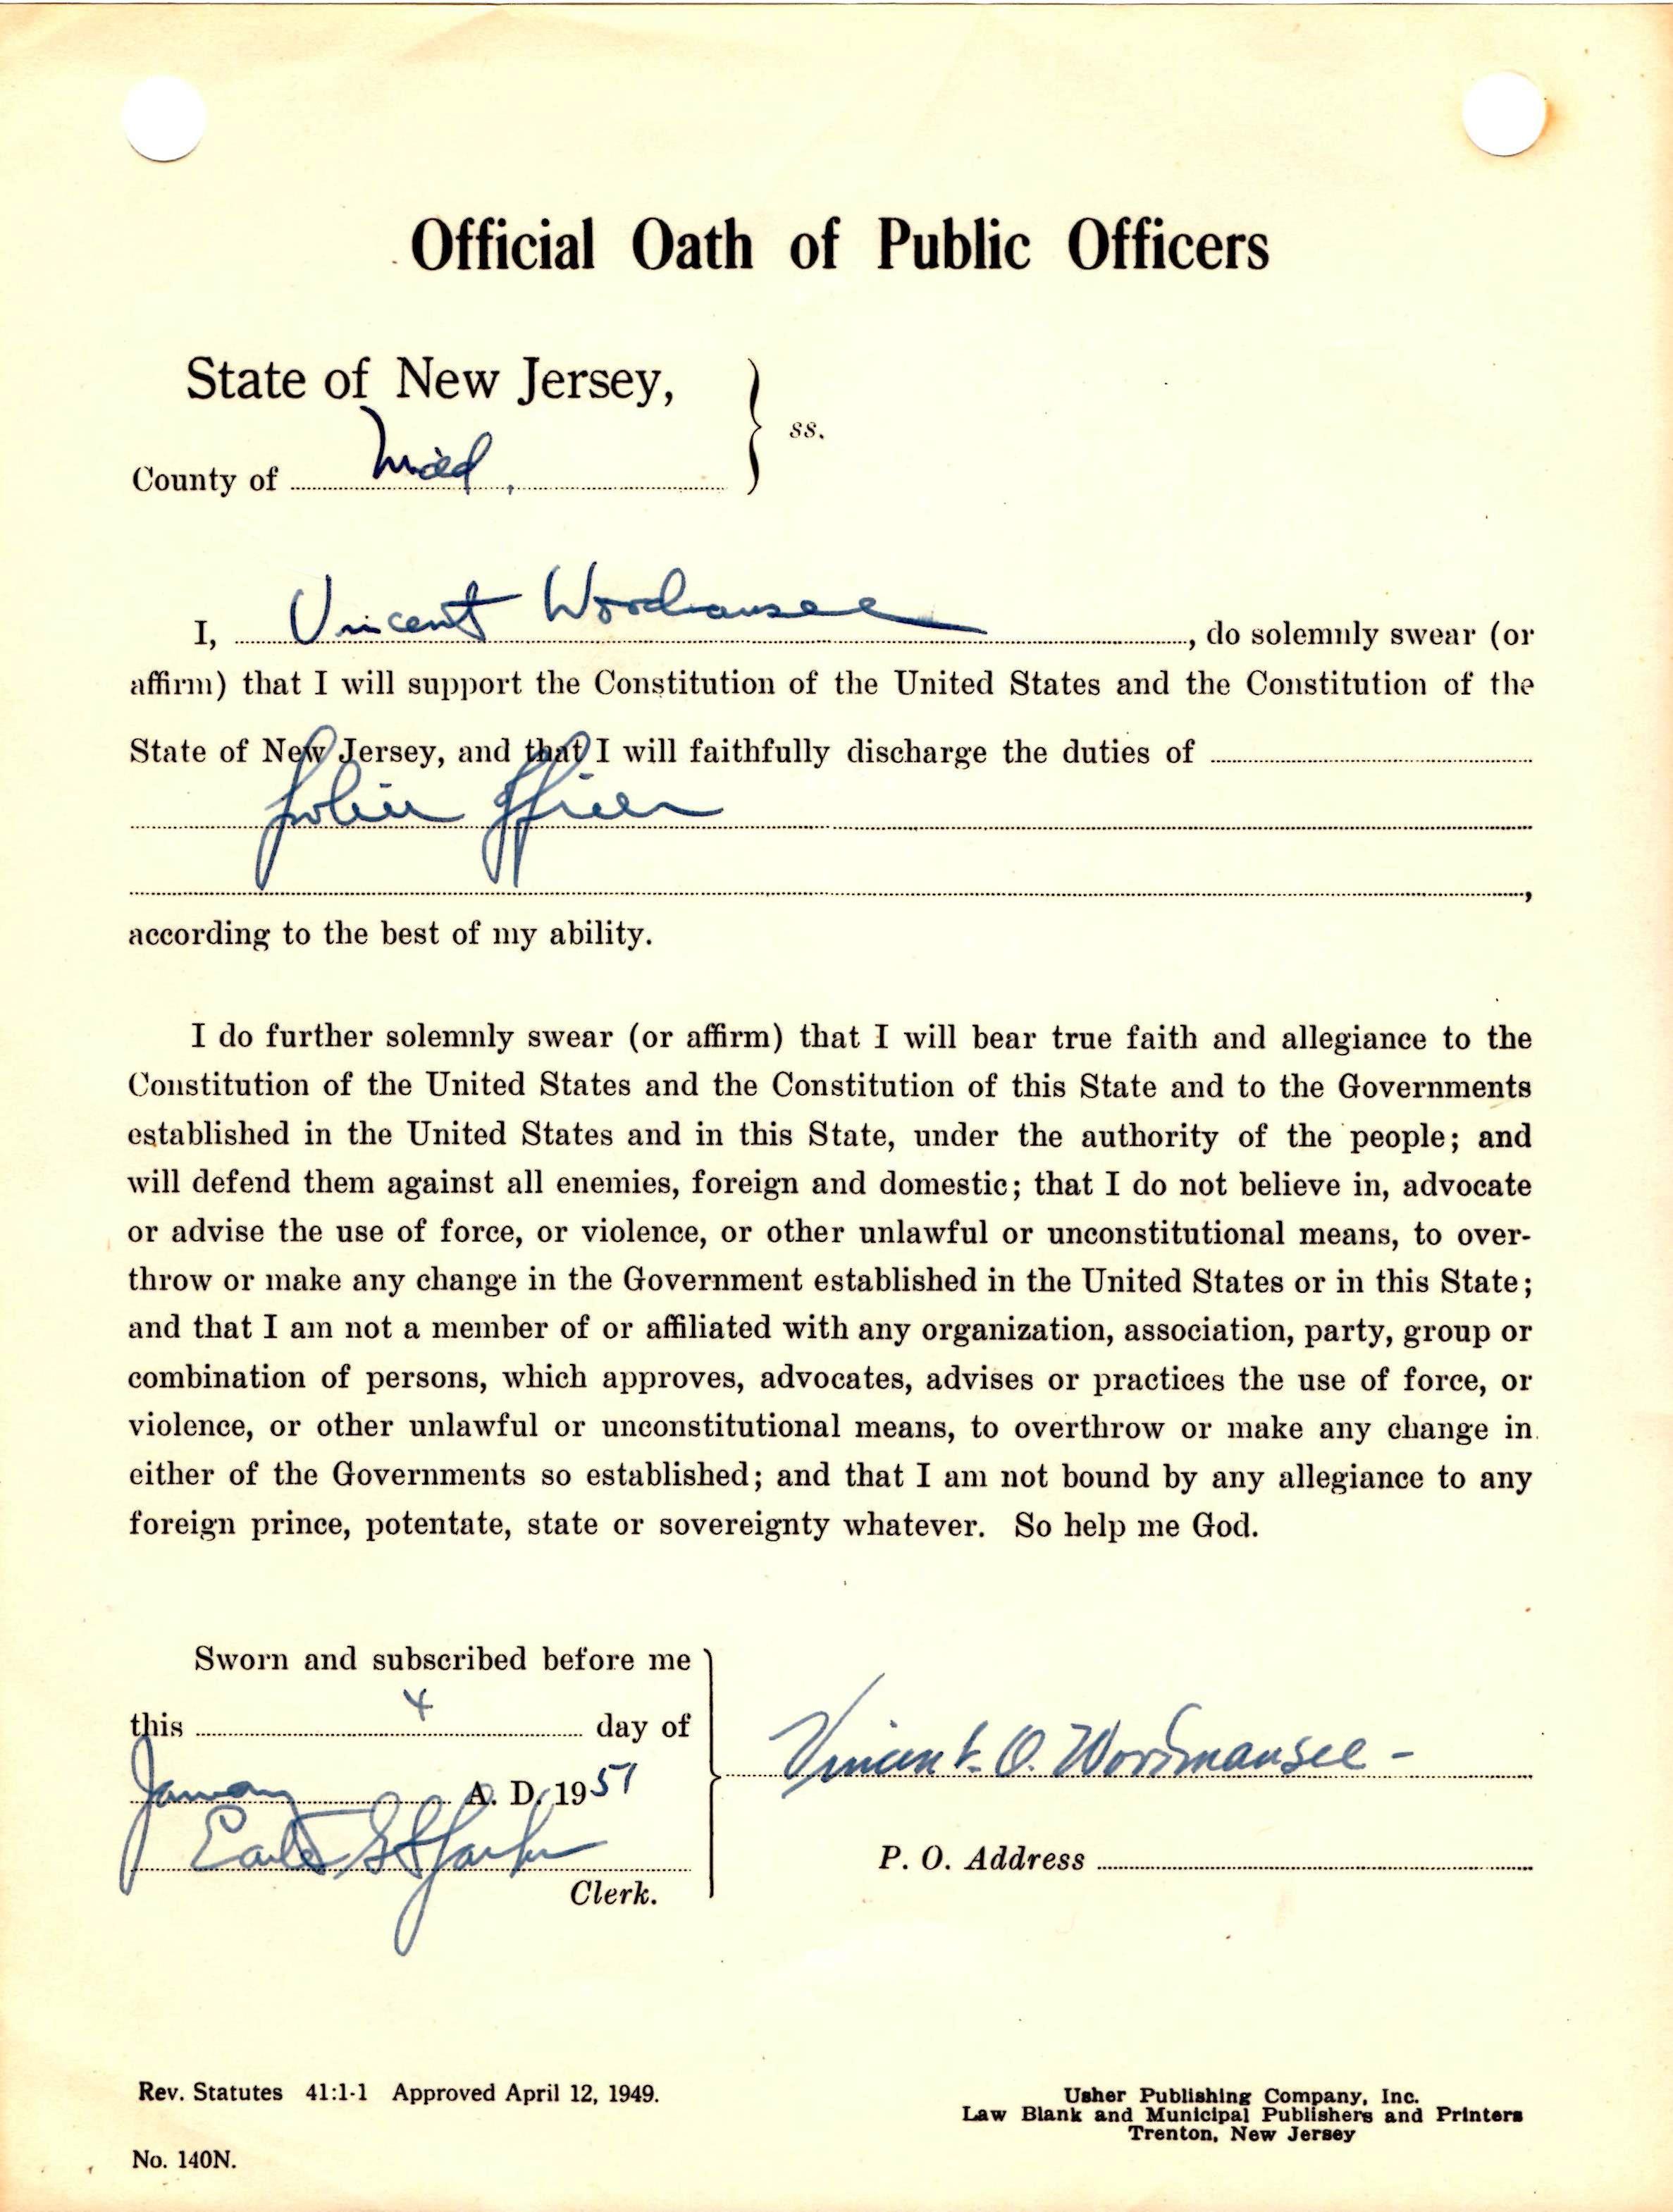 Official Oath of Public Officers
State of New Jersey,
ss.
County of Midd.
I, Vincent , do solemnly swear (or
affirm) that I will support the Constitution of the United States and the Constitution of the
State of New Jersey, and that I will faithfully discharge the duties of
Police Officer
,
according to the best of my ability.
I do further solemnly swear (or affirm) that I will bear true faith and allegiance to the
Constitution of the United States and the Constitution of this State and to the Governments
established in the United States and in this State, under the authority of the people; and
will defend them against all enemies, foreign and domestic; that I do not believe in, advocate
or advise the use of force, or violence, or other unlawful or unconstitutional means, to over-
throw or make any change in the Government established in the United States or in this State;
and that I am not a member of or affiliated with any organization, association, party, group or
combination of persons, which approves, advocates, advises or practices the use of force, or
violence, or other unlawful or unconstitutional means, to overthrow or make any change in
either of the Governments so established; and that I am not bound by any allegiance to any
foreign prince, potentate, state or sovereignty whatever. So help me God.
Sworn and subscribed before me
this 4 day of
January A. D. 1951
Vincent O.
Clerk.
P. O. Address
Rev. Statutes 41:1-1 Approved April 12, 1949.
No. 140N.
Usher Publishing Company, Inc.
Law Blank and Municipal Publishers and Printers
Trenton, New Jersey